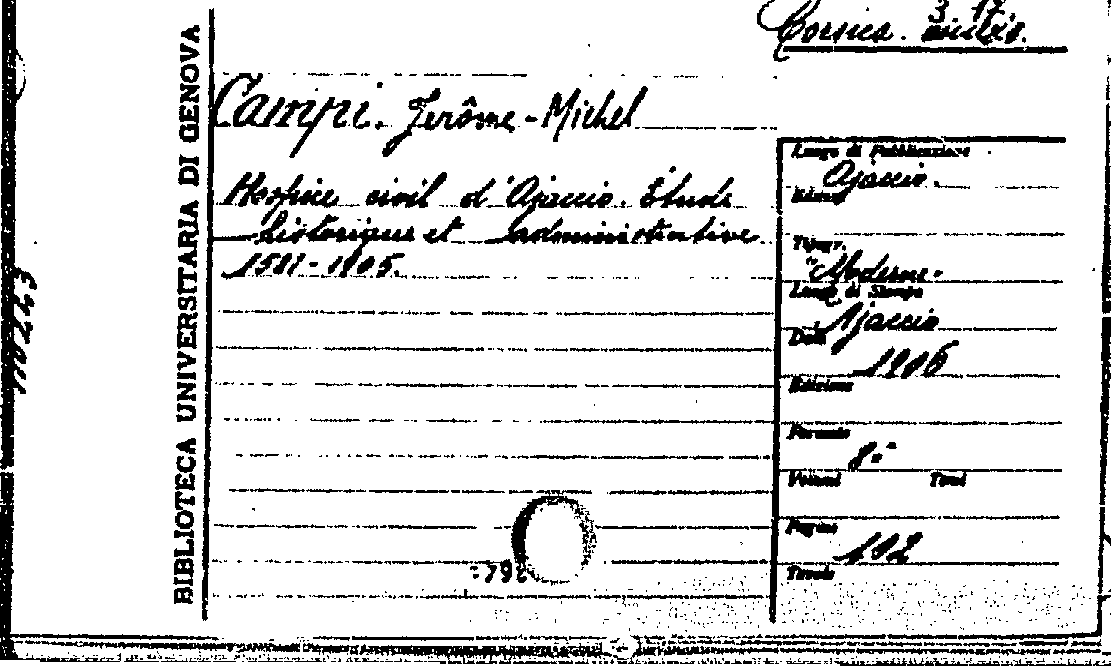 3. 17.
Corsica.
BIBLIOTECA UNIVERSITARIA DI GENOVA
Campi. Jerôme-Michel
Hospice civil d'Ajaccio. Étude
historique et administrative
1581-1905.
Luogo di Pubblicazione
Ajaccio.
Editore
Tipogr.
"Moderne"
Luogo di Stampa
Ajaccio
Data
1906
Edizione
Formato
8°
Volumi Tomi
Pagine
192
Tavole